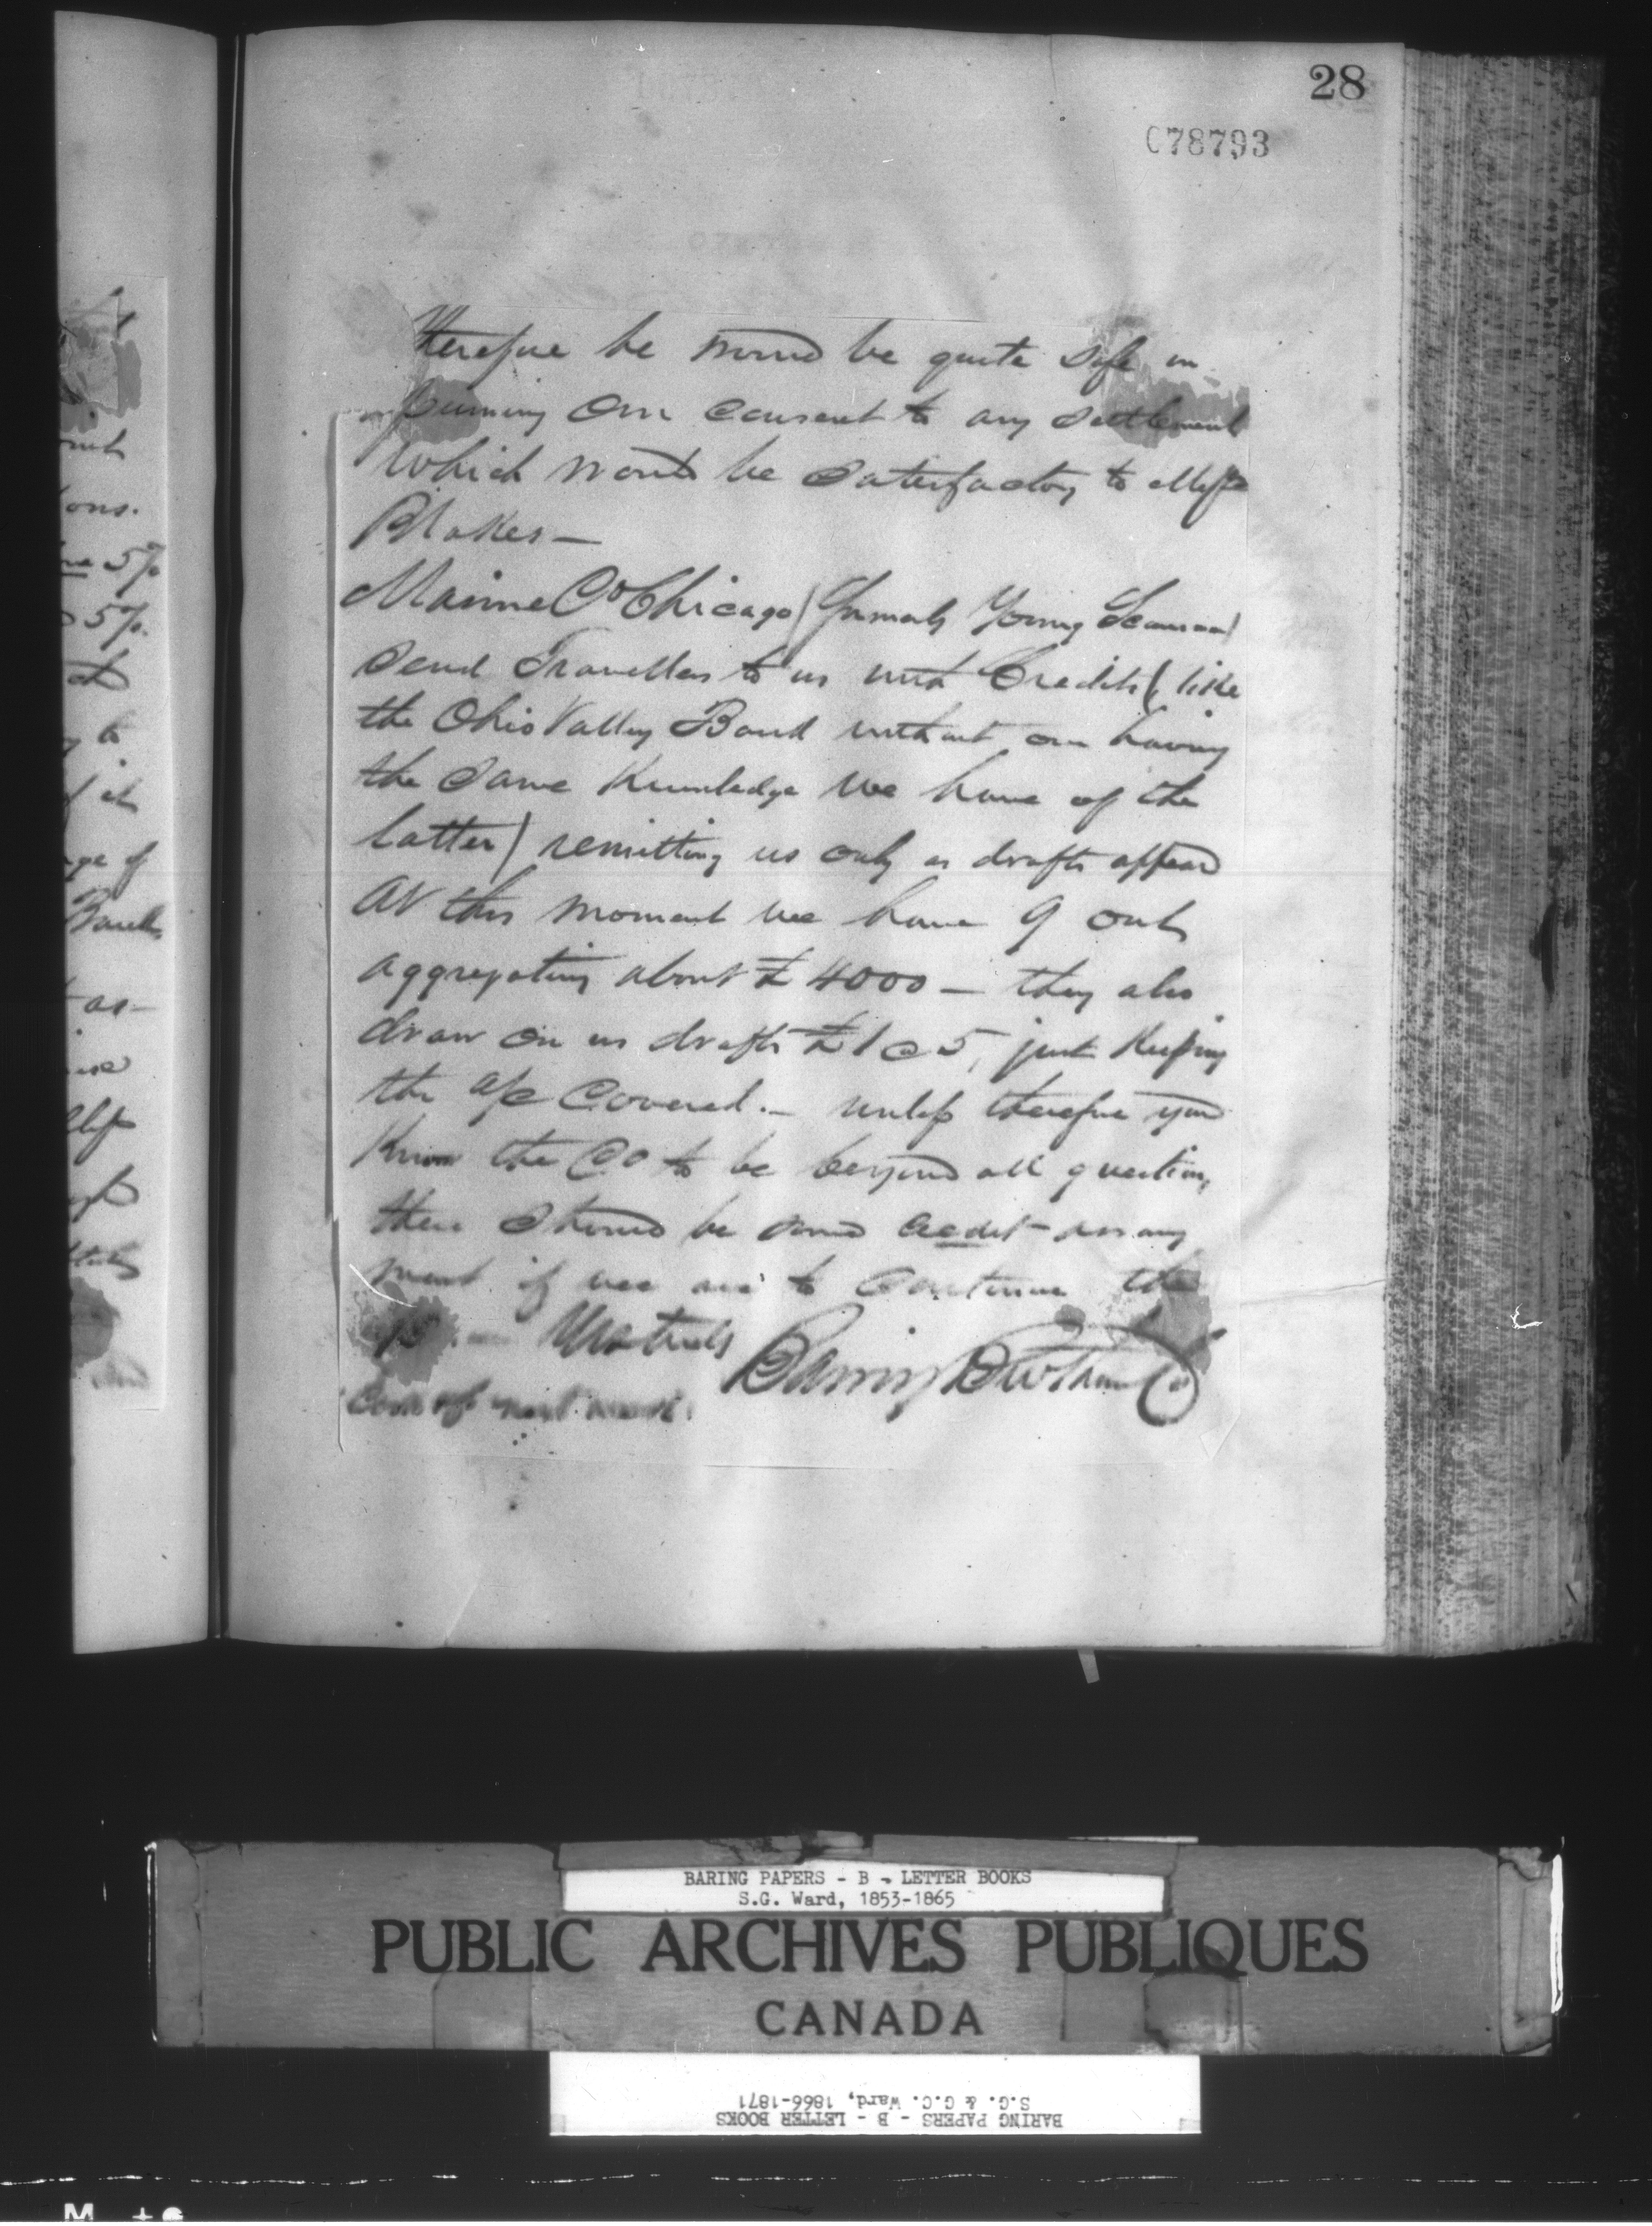 28
C78793
therefore he would be quite safe in
our consent to any settlement
which would be satisfactory to Messrs
Blakes —
Marine Co Chicago (formerly Young Scammon)
send Travellers to us with Credits (like
the Ohio Valley Bank without our having
the same Knowledge we have of the
latter) remitting us only as drafts appear
At this moment we have 9 out
aggregating about £4000 — they also
draw on us drafts £1 @ 5, just Keeping
the a/c Covered. — unless therefore you
Know the Co to be beyond all question,
there should be some credit arrange
ment if we are to continue the
Yrs truly
Baring Brothers Co
ons.
5%
5%.
of it
as
BARING PAPERS - B - LETTER BOOKS
S.G. Ward, 1853-1865
PUBLIC ARCHIVES PUBLIQUES
CANADA
BARING PAPERS - B - LETTER BOOKS
S.G. & G.C. Ward, 1866-1871